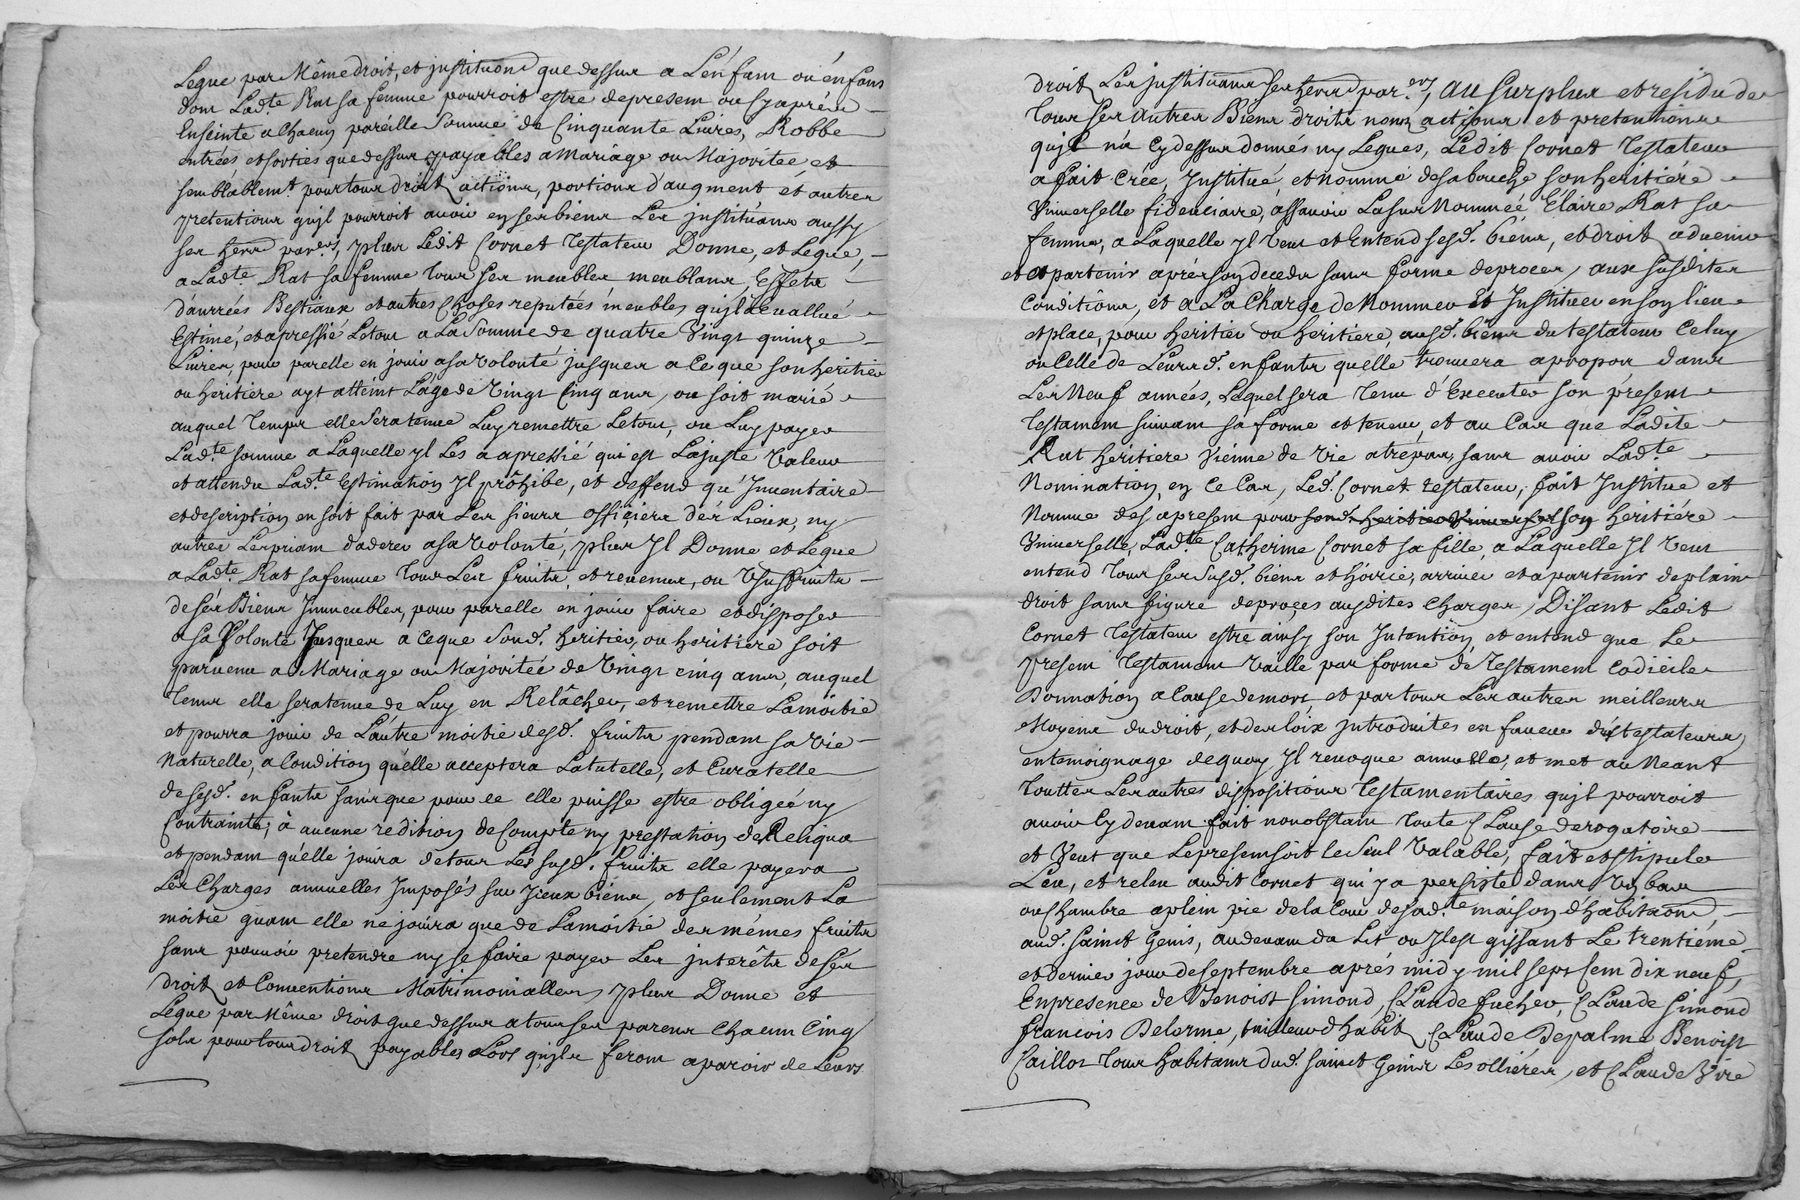 Legue par Même droit, et justitution que dessus a L'énfant ou énfans
dont Lad.te Rat sa femme pourroit estre de present ou cy aprés
Enseinte a Chacun paréille Somme de Cinquante Livres, Robbe
entrées et sorties que dessus payables a Mariage ou Majoritée et
semblablem.t pour tous droits actions, portions d'augment et autres
pretentions qujl pourroit avoir en ses biens Les jnstituans aussy
ses herrs par.ers, plus Ledit Cornet Testateur Donne, et Legue,
a Lad.te Rat sa femme tous ses meubles meublans, Effets
d'anrrées Bestiaux et autres Choses reputées meubles qujl Lévallué
Estimé, et apressié Le tout a La Somme de quatre Vingt quinze
Livres, pour par elle en jouir a sa volonté jusques a ce que son heritier
ou heritiere ayt atteint L'age de Vingt Cinq ans, ou soit marié
auquel Temps elle Sera tenue Luy remettre Le tout, ou Luy payer
Lad.te somme a Laquelle yl Les a apressié qui est La juste Valeur
et attendu Lad.te Estimation jl prôhibe, et deffend qu'Jnventaire
et description en soit fait par Les sieurs officiers dés Lieux, ny
autres Les priant d'aderer a sa volonté, plus Jl Donne et Legue
a Lad.te Rat sa femme tous Les fruits, et revenus, ou Vsuffruits
de sés Biens Jmmeubles, pour par elle en jouir faire et disposer
a sa Volonté Jusques a ce que Sond. heritier, ou heritiere soit
parvenu a Mariage ou Majoritée de Vingt cinq ans, auquel
tems elle sera tenue de Luy en Relâcher, et remettre La moitié
et pourra jouir de L'autre moitié desd. fruits pendant sa vie
Naturelle, a Condition qu'elle acceptera La tutelle, et Curatelle
de sesd. enfants sans que pour ce elle puisse estre obligeé ny
Contrainte, à aucune redition de Compte ny prestation de Reliqua
et pendant qu'elle jouira de tous Les susd. fruits elle payera
Les Charges annuelles Jmposés sur Jceux biens, et seulement La
moitié quant elle ne jouira que de La moitié des mémes fruits
sans pouvoir pretendre ny se faire payer Les jnterêts de sés
droits et Conventions Matrimonialles, plus Donne et
Légue par Même droit que dessus a tous ses parens Chacun Cinq
sols pour tous droits payables Lors qujls feront aparoir de Leurs
droits Les jnstituans ses herrs par.ers, Au Surplus et residu de
tous ses autres Biens droits noms actions et pretentions
qujl n'a Cy dessus donnés ny Legués, Ledit Cornet Testateur
a fait Créé, Jnstitué, et nommé de sa bouche son heritiére
Vniverselle fideuciaire, assavoir La sus Nommée, Claire Rat sa
femme, a Laquelle yl Veut et Entend sesd. biens, et droits advenir
et apartenir aprés son deceds sans forme de procez, aux susdites
Conditions, et a La Charge de Nommer Et Jnstituer en son lieu
et place, pour heritier ou heritiere, ausd. biens du testateur Celuy
ou Celle de Leursd. enfants quelle trouvera a propos dans
Les Neuf années, Lequel sera tenu d'Executer son present
Testament suivant sa forme et teneur, et au Cas que Ladite
Rat heritiere Vienne de vie a trepas, sans avoir Lad.te
Nomination, en ce Cas, Led. Cornet testateur, fait Jnstitue et
Nomme des a present pour sond. heritier Vniversel son heritiére
Vniverselle, Lad.te Catherine Cornet sa fille, a Laquelle Jl Veut
entend tous ses susd. biens et hoirie, arriver et apartenir de plain
droit sans figure de proçes ausdites Charges, Disant Ledit
Cornet Testateur estre ainsy son Jntention et entend que Le
present Testament Vaille par forme de Testament Codicile
Donnation a Cause de mort, et par tous Les autres meilleurs
Moyens du droit, et des Loix jntroduites en faveur des testateurs
en temoignage de quoy jl revoque annulle, et met au Neant
Touttes Les autres dispositions Testamentaires qujl pourroit
avoir Cy devant fait nonobstant toute Clause derogatoire
et Veut que Le present soit le Seul Valable, fait et stipulé
Leu, et releu audit Cornet qui y a persisté dans Vn bas
ou Chambre a plein pie de la Cour de sad.te maison d'habitaõn,
aud. sainct Genis, au devant du Lit ou Jl est gissant Le trentiéme
et dernier jour de septembre aprés midy mil sept sent dix neuf,
En presence de Benoist Simond, Claude fuchev, Claude Simond
francois Delorme, tailleur d'habit, Claude Depalme Benoist
Caillot tous habitans dud. sainct Genis Les ollliéres, et Claude Vire